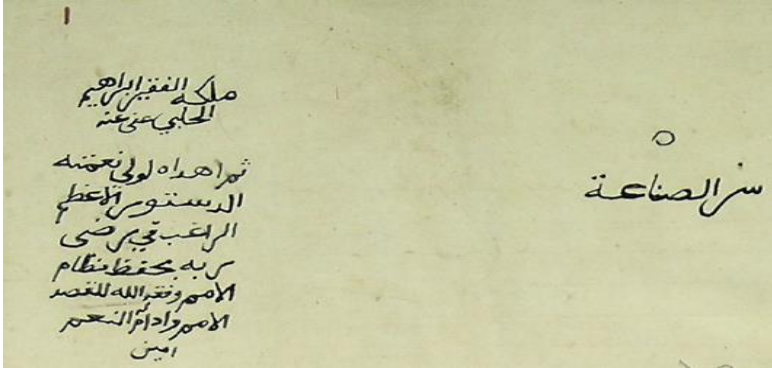 سر الصناعة
ملكه الفقير ابراهيم
الحلبي عفى عنه
ثم اهداه لولي نعمته
الدستور الاعظم
الراغب في رضى
ربه بحفظ نظام
الامم وفقه الله للقصد
الامم وادام النعم
امين